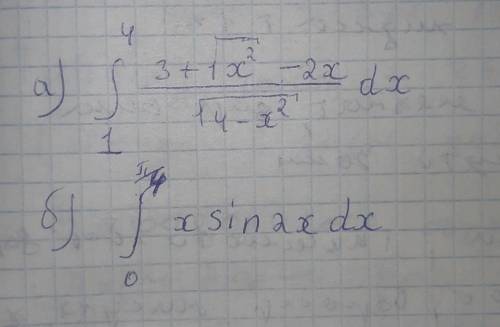 а) ∫₁⁴ (3 + √x² − 2x) / √(4 − x²) dx
б) ∫₀^(π/4) x sin 2x dx